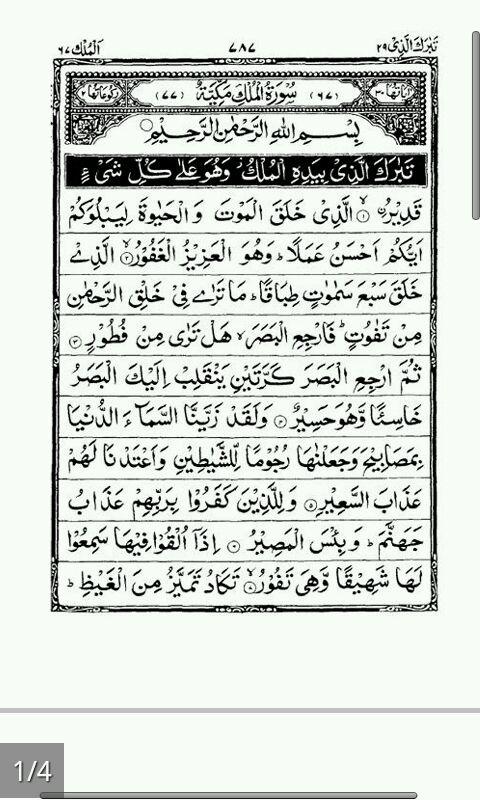 تَبٰرَكَ الَّذِیْ ۲۹ ۷۸۷ اَلْمُلْك ۶۷
اٰیَاتُهَا ۳۰ (۶۷) سُوْرَةُ الْمُلْكِ مَكِّیَّةٌ (۷۷) رُكُوْعَاتُهَا ۲
بِسْمِ اللّٰهِ الرَّحْمٰنِ الرَّحِیْمِ
تَبٰرَكَ الَّذِیْ بِیَدِهِ الْمُلْكُ ز وَهُوَ عَلٰی كُلِّ شَیْءٍ
قَدِیْرُۨ ۙ﴿۱﴾ الَّذِیْ خَلَقَ الْمَوْتَ وَ الْحَیٰوةَ لِیَبْلُوَكُمْ
اَیُّكُمْ اَحْسَنُ عَمَلًا ؕ وَهُوَ الْعَزِیْزُ الْغَفُوْرُ ۙ﴿۲﴾ الَّذِیْ
خَلَقَ سَبْعَ سَمٰوٰتٍ طِبَاقًا ؕ مَا تَرٰی فِیْ خَلْقِ الرَّحْمٰنِ
مِنْ تَفٰوُتٍ ؕ فَارْجِعِ الْبَصَرَ ۙ هَلْ تَرٰی مِنْ فُطُوْرٍ ﴿۳﴾
ثُمَّ ارْجِعِ الْبَصَرَ كَرَّتَیْنِ یَنْقَلِبْ اِلَیْكَ الْبَصَرُ
خَاسِئًا وَّهُوَ حَسِیْرٌ ﴿۴﴾ وَلَقَدْ زَیَّنَّا السَّمَآءَ الدُّنْیَا
بِمَصَابِیْحَ وَجَعَلْنٰهَا رُجُوْمًا لِّلشَّیٰطِیْنِ وَاَعْتَدْنَا لَهُمْ
عَذَابَ السَّعِیْرِ ﴿۵﴾ وَ لِلَّذِیْنَ كَفَرُوْا بِرَبِّهِمْ عَذَابُ
جَهَنَّمَ ؕ وَ بِئْسَ الْمَصِیْرُ ﴿۶﴾ اِذَاۤ اُلْقُوْا فِیْهَا سَمِعُوْا
لَهَا شَهِیْقًا وَّهِیَ تَفُوْرُ ۙ﴿۷﴾ تَكَادُ تَمَیَّزُ مِنَ الْغَیْظِ ؕ
1/4